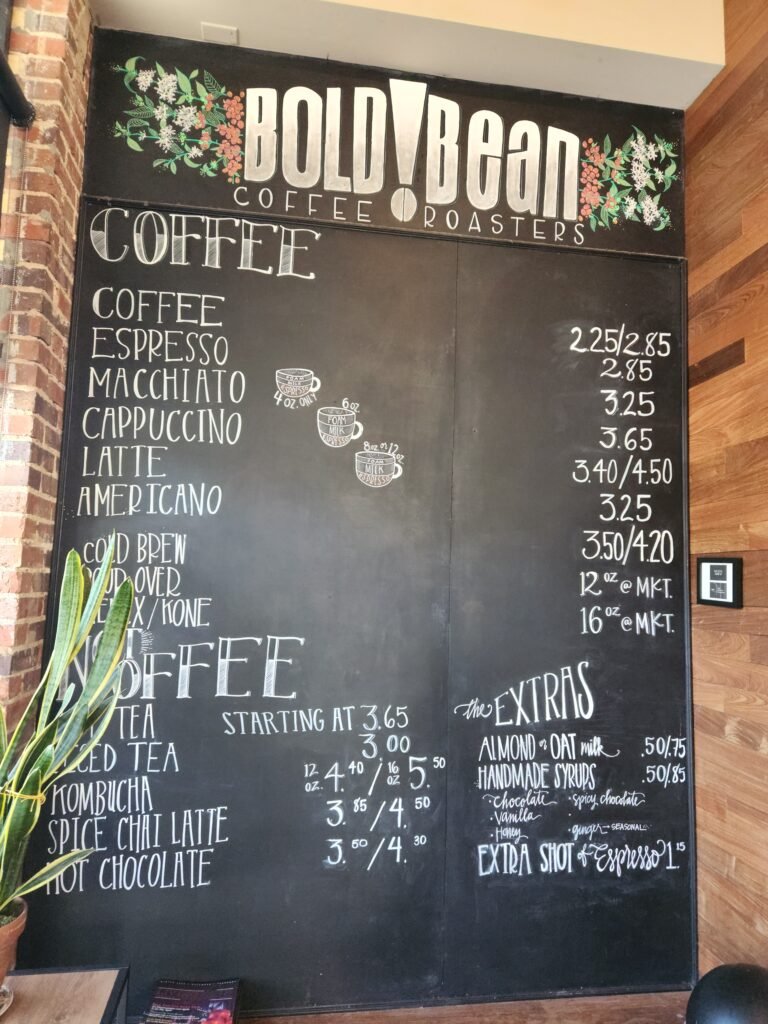 BOLD!Bean
COFFEE ROASTERS
COFFEE
COFFEE 2.25/2.85
ESPRESSO 2.85
MACCHIATO 3.25
FOAM
MILK
ESPRESSO
4 OZ. ONLY
CAPPUCCINO 3.65
6 OZ
FOAM
MILK
ESPRESSO
LATTE 3.40/4.50
8 OZ or 12 OZ
FOAM
MILK
ESPRESSO
AMERICANO 3.25
COLD BREW 3.50/4.20
POUR-OVER 12 OZ @ MKT.
X/KONE 16 OZ @ MKT.
NOT
COFFEE
TEA STARTING AT 3.65
ICED TEA 3.00
KOMBUCHA 12 OZ. 4.40/16 OZ 5.50
SPICE CHAI LATTE 3.85/4.50
HOT CHOCOLATE 3.50/4.30
the EXTRAS
ALMOND or OAT milk .50/.75
HANDMADE SYRUPS .50/.85
· chocolate · spicy chocolate
· Vanilla
· Honey · ginger → SEASONAL
EXTRA SHOT of Espresso 1.15